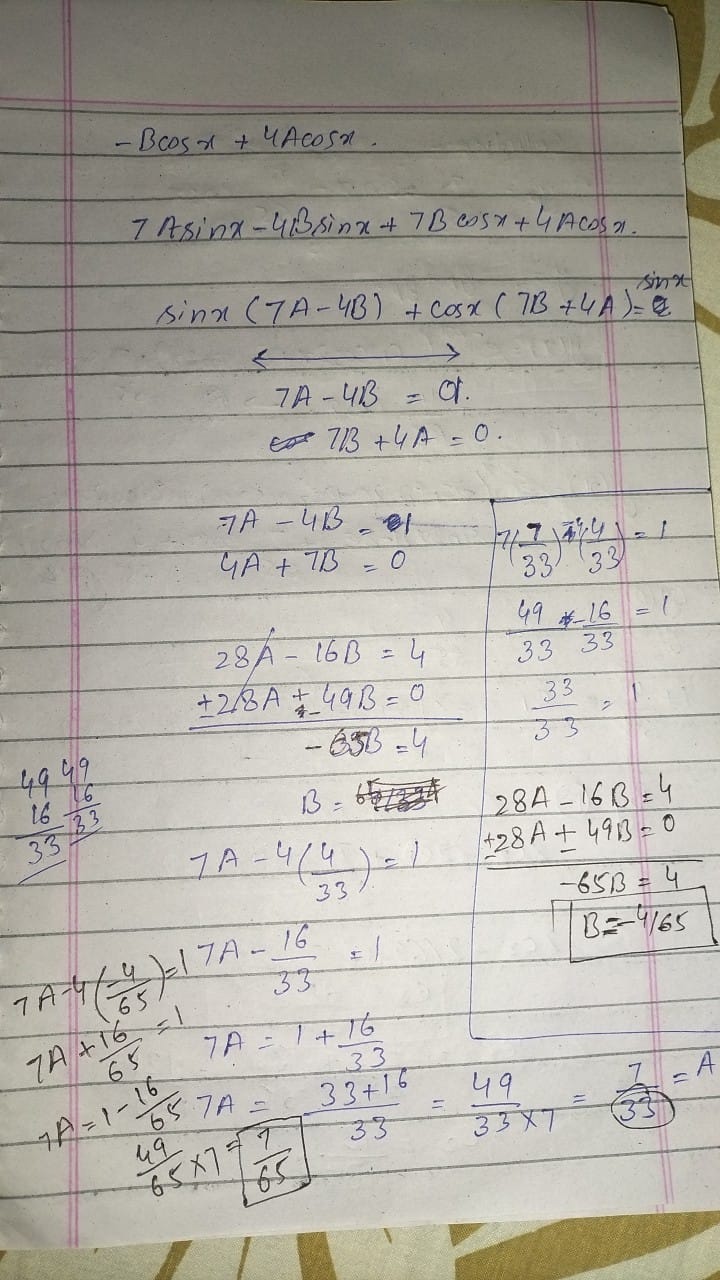 -Bcosx + 4Acosx.
7Asinx-4Bsinx+ 7Bcosx+4Acosx.
sinx (7A-4B) +cosx ( 7B+4A)= sinx
7A-4B = 1.
7B+4A=0.
7A-4B = 1
4A+7B = 0
28A-16B = 4
±28A ± 49B=0
-65B=4
B =
7A-4(4/33)=1
7A-16/33 = 1
7A = 1+16/33
7A = 33+16/33 = 49/33×7 = 7/33 = A
49 49
16 16
33 33
7A-4(4/65)=1
7A+16/65=1
7A=1-16/65
49/65×7=7/65
7(7/33)-4(4/33) = 1
49/33 - 16/33 = 1
33/33 = 1
28A-16B=4
±28A± 49B=0
-65B = 4
B=-4/65